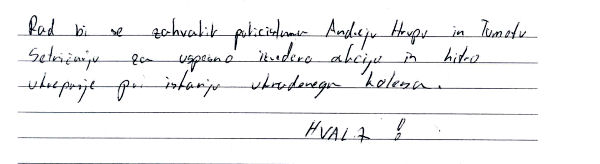 Rad bi se zahvalil policistoma Andreju Hrupu in Tomažu
za uspešno izvedeno akcijo in hitro
ukrepanje pri iskanju ukradenega kolesa.
HVALA !